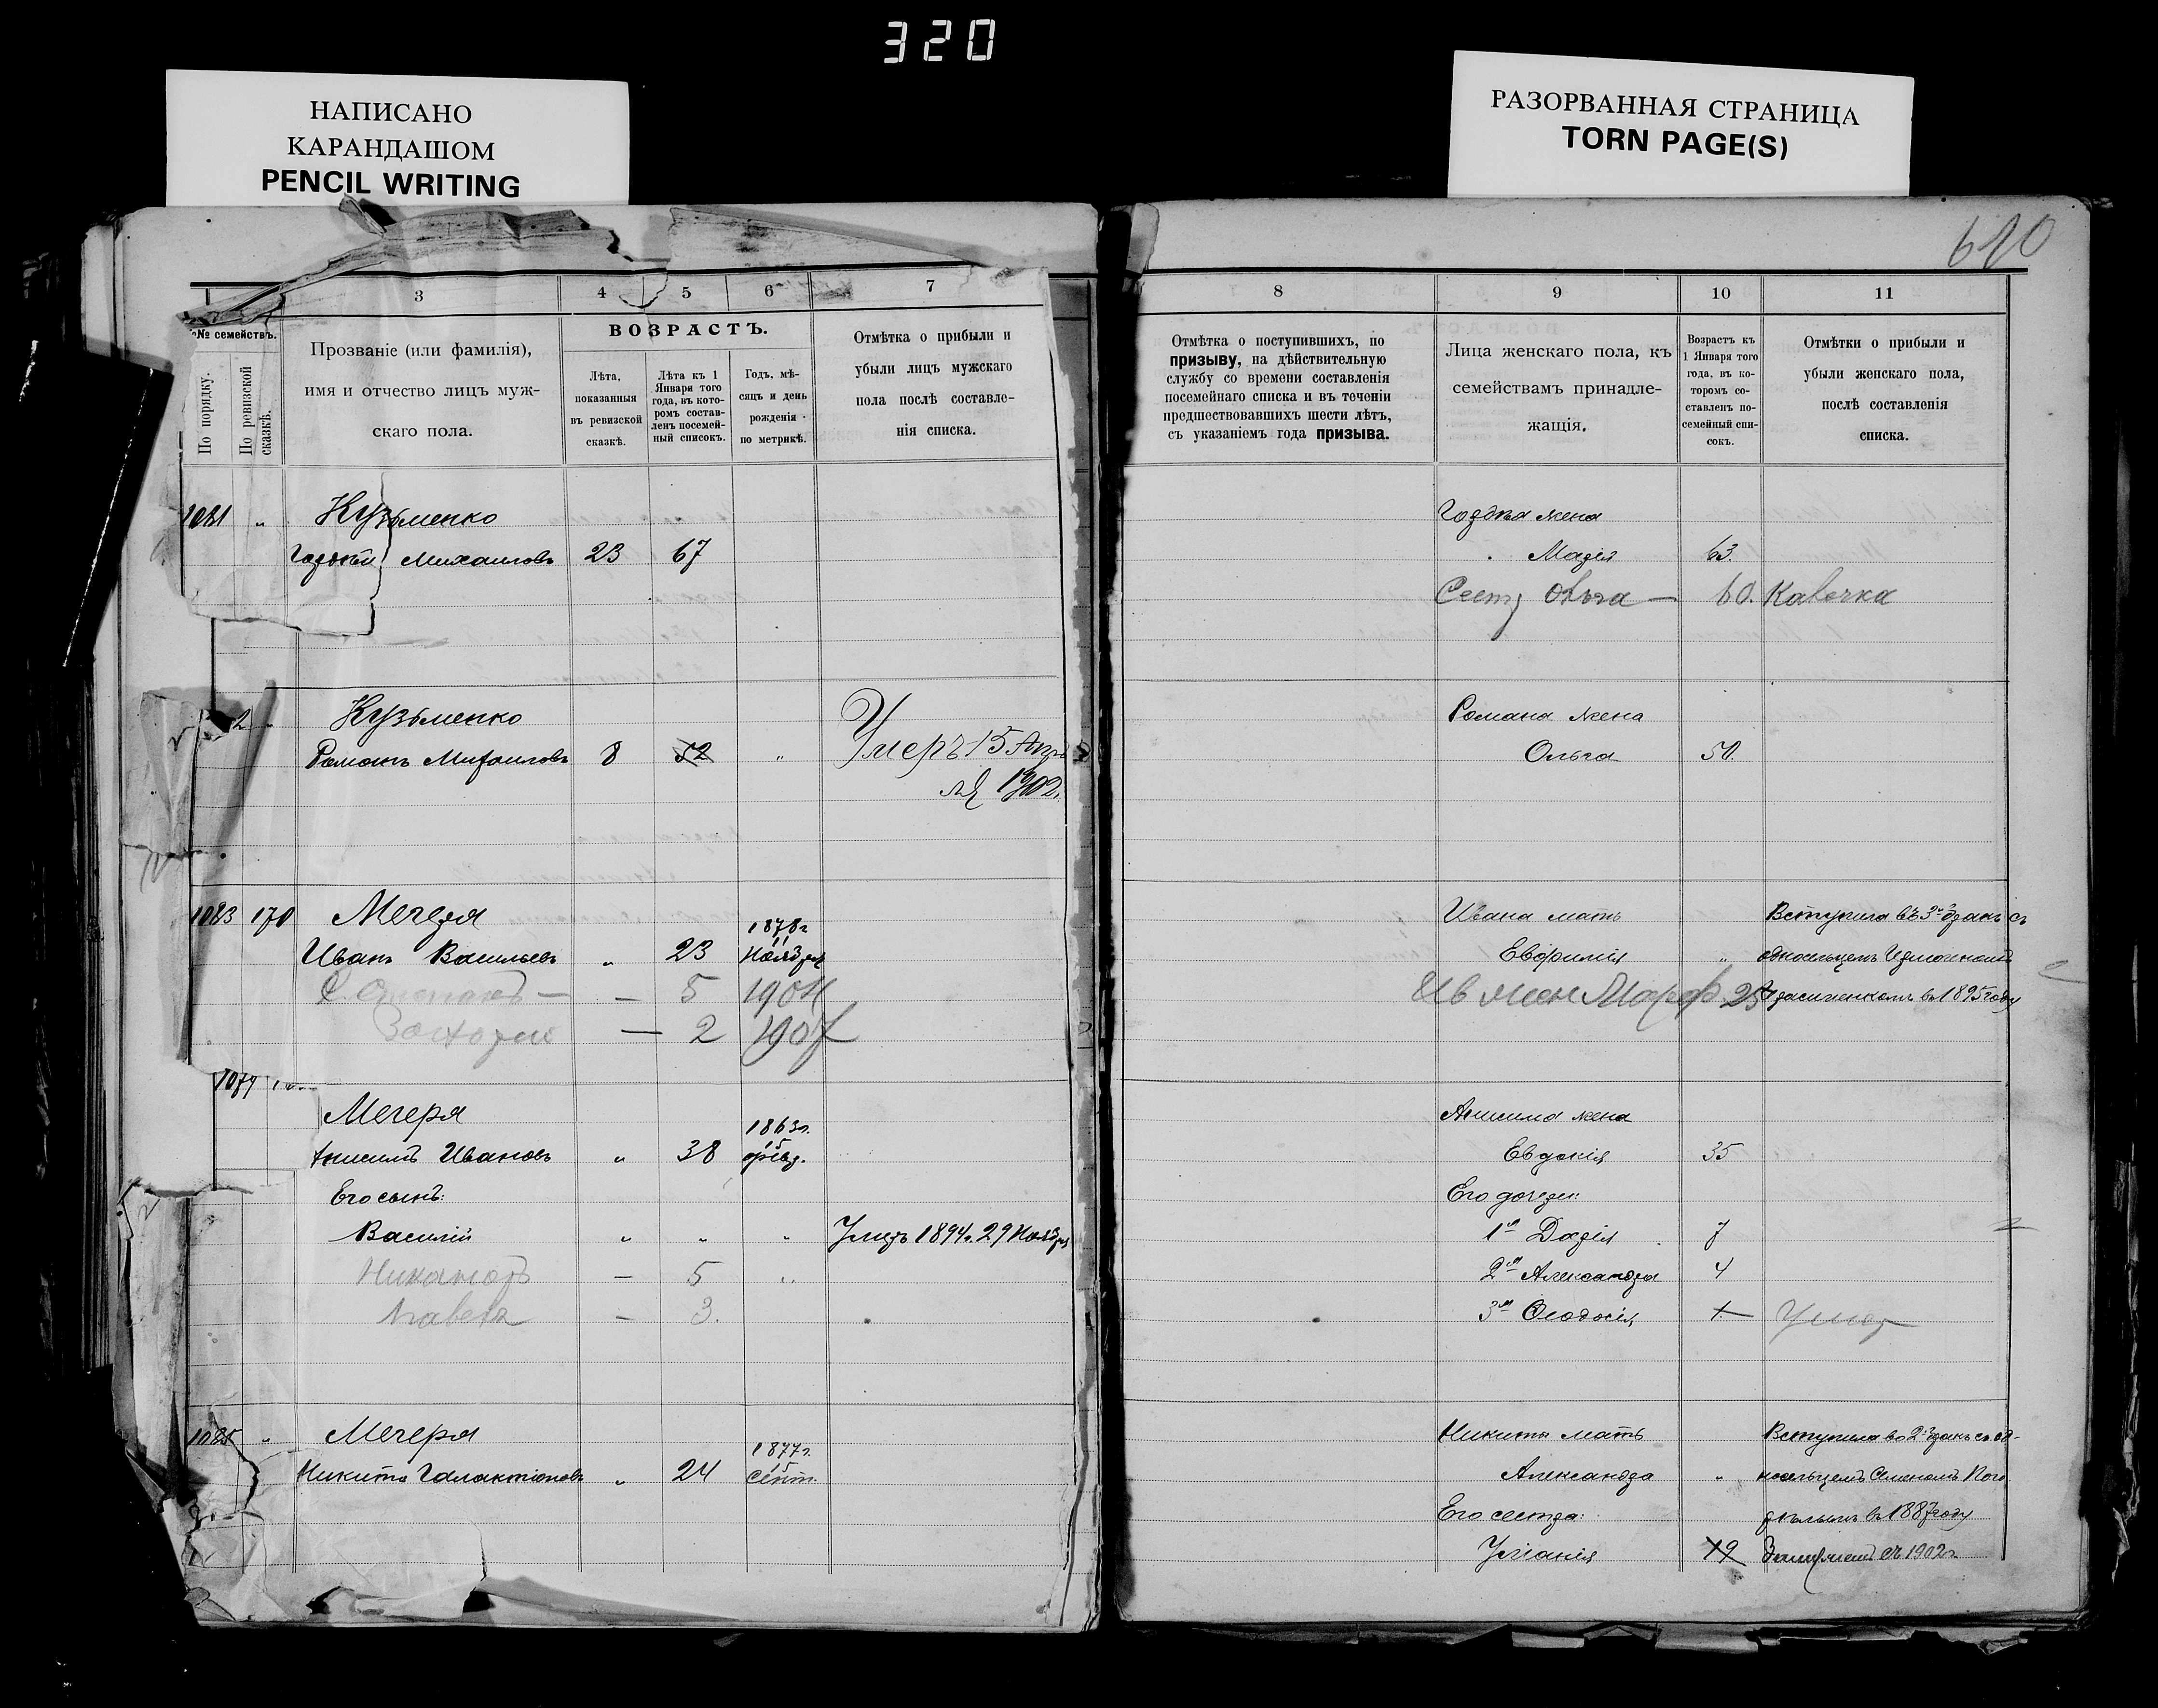 320
НАПИСАНО
КАРАНДАШОМ
PENCIL WRITING
РАЗОРВАННАЯ СТРАНИЦА
TORN PAGE(S)
610
3
4
5
6
7
№ семействъ.
По порядку.
По ревизской сказкѣ.
Прозваніе (или фамилія),
имя и отчество лицъ муж-
скаго пола.
ВОЗРАСТЪ.
Лѣта,
показанныя
въ ревизской
сказкѣ.
Лѣта къ 1
Января того
года, въ кото-
ромъ состав-
ленъ посемей-
ный списокъ.
Годъ, мѣ-
сяцъ и день
рожденія
по метрикѣ.
Отмѣтка о прибыли и
убыли лицъ мужскаго
пола послѣ составле-
нія списка.
1081 „ Кузьменко
Михаиловъ 23 67
2 Кузьменко
Романъ Михаиловъ 8 52 „ Умеръ 15 Апрѣ
ля 1902.
1083 170 Мечеря
1878г
Иванъ Васильевъ „ 23 11 Ноября
Степанъ — — 5 1904
— 2 1907
Мечеря
1863г.
Анисимъ Ивановъ „ 38 15 февр.
Его сынъ:
Василій „ „ „ Умеръ 1894г. 29 Ноября
Никаноръ — 5 „
Павелъ — 3.
1085 „ Мечеря
1877г.
Никита Галактіоновъ „ 24 15 Сент.
8
9
10
11
Отмѣтка о поступившихъ, по
призыву, на дѣйствительную
службу со времени составленія
посемейнаго списка и въ теченіи
предшествовавшихъ шести лѣтъ,
съ указаніемъ года призыва.
Лица женскаго пола, къ
семействамъ принадле-
жащія.
Возрастъ къ
1 Января того
года, въ ко-
торомъ со-
ставленъ по-
семейный спи-
сокъ.
Отмѣтки о прибыли и
убыли женскаго пола,
послѣ составленія
списка.
жена
Марія 63.
Сест Ольга — 60.
Романа жена
Ольга 50.
Ивана мать Вступила въ 2й бракъ съ
Евфимія „ односельцемъ
Ив жен Марф 25 въ 1895 году
Анисима жена
Евдокія 35
Его дочери:
1я Дарія 7
2я Александра 4
3я Ѳеодосія 1 Умер
Никиты мать Вступила во 2й бракъ съ од-
Александра „ носельцемъ
Его сестра: въ 1887 году
Уліанія 19 съ 1902г